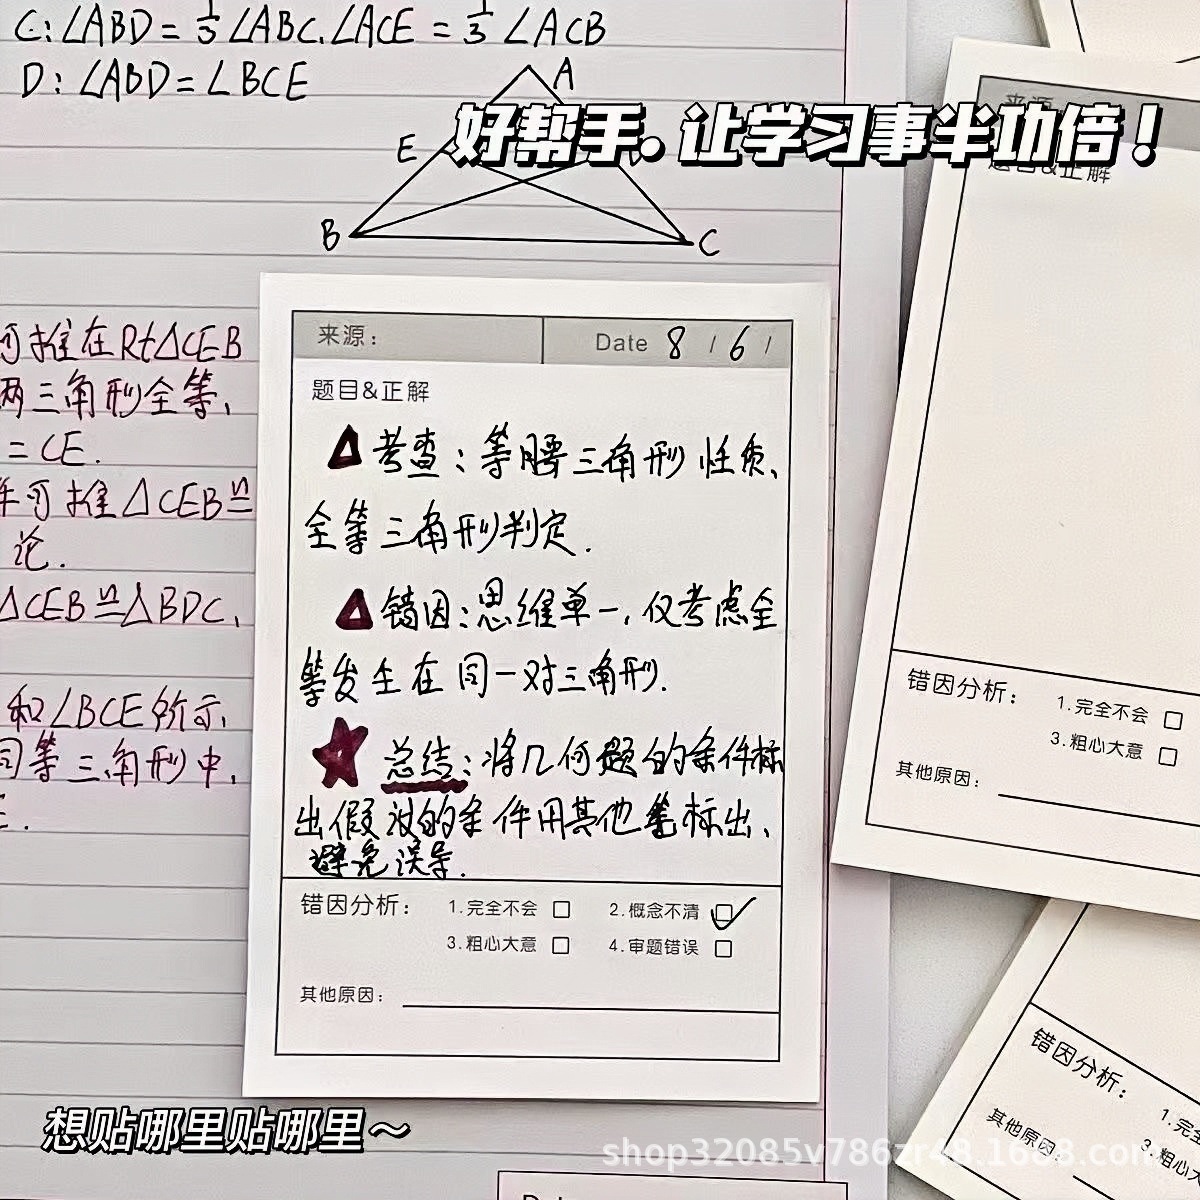 C:∠ABD=⅓∠ABC.∠ACE=⅓∠ACB
D:∠ABD=∠BCE
A
好帮手.让学习事半功倍!
E
B
C
可推在Rt△CEB
两三角形全等、
=CE.
件可推△CEB≌
论.
△CEB≌△BDC、
和∠BCE所示、
同等三角形中、
来源:
Date 8 / 6 /
题目&正解
△考查:等腰三角形性质、
全等三角形判定.
△错因:思维单一,仅考虑全
等发生在同一对三角形.
★总结:将几何题的条件标
出假设的条件用其他笔标出、
避免误导.
错因分析: 1.完全不会 □ 2.概念不清 □✓
3.粗心大意 □ 4.审题错误 □
其他原因:
来源
题目&正解
错因分析: 1.完全不会 □
3.粗心大意 □
其他原因:
错因分析:
1.完全
3.粗心
其他原因
想贴哪里贴哪里~
shop32085v786zr48.1688.com